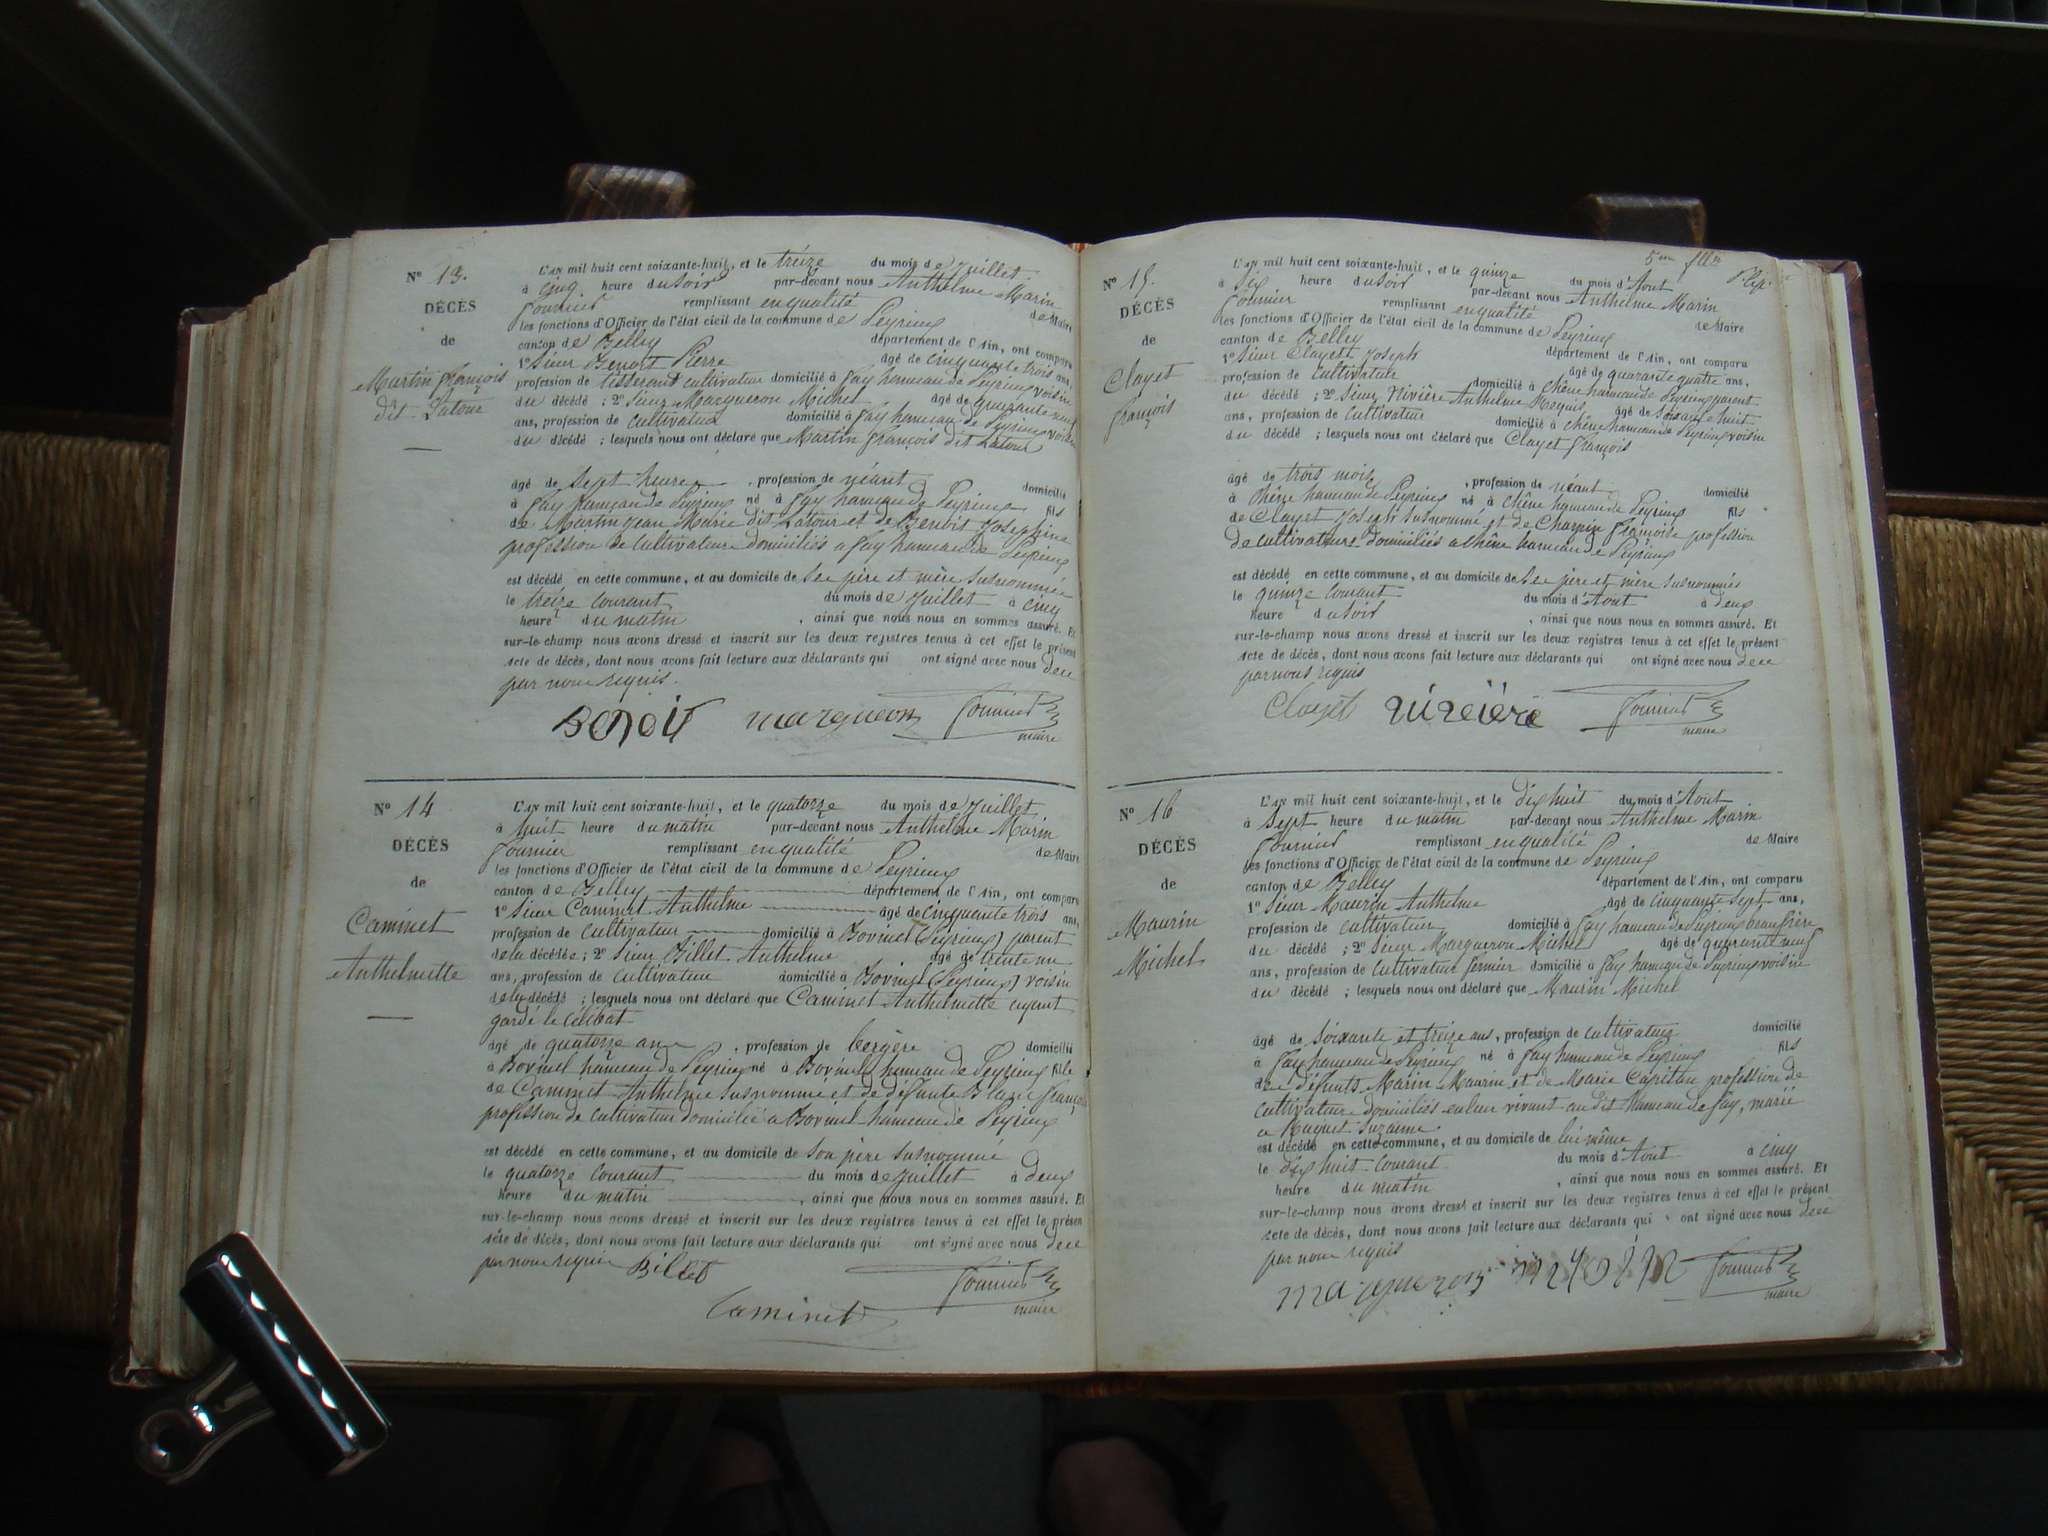 Nº 13.
DÉCÈS
de
Martin françois
dit Latour
L'AN mil huit cent soixante-huit, et le treize du mois de Juillet
à cinq heure du soir par-devant nous Anthelme Marin
fournier remplissant en qualité de Maire
les fonctions d'Officier de l'état civil de la commune de Peyrieux
canton de Belley département de l'Ain, ont comparu
1º Sieur Benoit Pierre âgé de cinquante trois ans,
profession de tisserant cultivateur domicilié à fay hameau de Peyrieux voisin
du décédé ; 2º Sieur Margueron Michel âgé de quarante neuf
ans, profession de cultivateur domicilié à fay hameau de Peyrieux voisin
du décédé ; lesquels nous ont déclaré que Martin françois dit Latour
âgé de sept heures, profession de néant domicilié
à fay hameau de Peyrieux né à fay hameau de Peyrieux fils
de Martin Jean Marie dit Latour et de Benoit Josephine
profession de cultivateurs domiciliés a fay hameau de Peyrieux
est décédé en cette commune, et au domicile de ses père et mère susnommés
le treize courant du mois de Juillet à cinq
heure du matin, ainsi que nous nous en sommes assuré. Et
sur-le-champ nous avons dressé et inscrit sur les deux registres tenus à cet effet le présent
acte de décès, dont nous avons fait lecture aux déclarants qui ont signé avec nous de ce
par nous requis.
BENOIT margueron fournier
maire
Nº 14
DÉCÈS
de
Caminet
Anthelmette
L'AN mil huit cent soixante-huit, et le quatorze du mois de Juillet
à huit heure du matin par-devant nous Anthelme Marin
fournier remplissant en qualité de Maire
les fonctions d'Officier de l'état civil de la commune de Peyrieux
canton de Belley département de l'Ain, ont comparu
1º Sieur Caminet Anthelme âgé de cinquante trois ans,
profession de cultivateur domicilié à Bovinel (Peyrieux) parent
de la décédée ; 2º Sieur Billet Anthelme âgé de trente un
ans, profession de cultivateur domicilié à Bovinel (Peyrieux) voisin
de la décédé ; lesquels nous ont déclaré que Caminet Anthelmette ayant
gardé le célibat
âgé de quatorze ans, profession de bergère domicilié
à Bovinel hameau de Peyrieux né à Bovinel hameau de Peyrieux fille
de Caminet Anthelme susnommé et de défunte Blanc françoise
profession de cultivateur domicilié a Bovinel hameau de Peyrieux
est décédé en cette commune, et au domicile de son père susnommé
le quatorze courant du mois de Juillet à deux
heure du matin, ainsi que nous nous en sommes assuré. Et
sur-le-champ nous avons dressé et inscrit sur les deux registres tenus à cet effet le présent
acte de décès, dont nous avons fait lecture aux déclarants qui ont signé avec nous de ce
par nous requis Billet fournier
Caminet maire
5me
Nº 15.
DÉCÈS
de
Clayet
françois
L'AN mil huit cent soixante-huit, et le quinze du mois d'Aout
à six heure du soir par-devant nous Anthelme Marin
fournier remplissant en qualité de Maire
les fonctions d'Officier de l'état civil de la commune de Peyrieux
canton de Belley département de l'Ain, ont comparu
1º Sieur Clayet Joseph âgé de quarante quatre ans,
profession de cultivateur domicilié à chêne hameau de Peyrieux parent
du décédé ; 2º Sieur Rivière Anthelme âgé de soixante huit
ans, profession de cultivateur domicilié à chêne hameau de Peyrieux voisin
du décédé ; lesquels nous ont déclaré que Clayet françois
âgé de trois mois, profession de néant domicilié
à chêne hameau de Peyrieux né à chêne hameau de Peyrieux fils
de Clayet Joseph susnommé et de Charpin françoise profession
de cultivateurs domiciliés a chêne hameau de Peyrieux
est décédé en cette commune, et au domicile de ses père et mère susnommés
le quinze courant du mois d'Aout à deux
heure du soir, ainsi que nous nous en sommes assuré. Et
sur-le-champ nous avons dressé et inscrit sur les deux registres tenus à cet effet le présent
acte de décès, dont nous avons fait lecture aux déclarants qui ont signé avec nous de ce
par nous requis
Clayet rivière fournier
maire
Nº 16
DÉCÈS
de
Maurin
Michel
L'AN mil huit cent soixante-huit, et le dix huit du mois d'Aout
à sept heure du matin par-devant nous Anthelme Marin
fournier remplissant en qualité de Maire
les fonctions d'Officier de l'état civil de la commune de Peyrieux
canton de Belley département de l'Ain, ont comparu
1º Sieur Anthelme âgé de cinquante sept ans,
profession de cultivateur domicilié à fay hameau de Peyrieux beau frère
du décédé ; 2º Sieur Margueron Michel âgé de quarante neuf
ans, profession de cultivateur fermier domicilié à fay hameau de Peyrieux voisin
du décédé ; lesquels nous ont déclaré que Maurin Michel
âgé de soixante et treize ans, profession de cultivateur domicilié
à fay hameau de Peyrieux né à fay hameau de Peyrieux fils
de défunts Marin Maurin et de Marie Capitan profession de
cultivateurs domiciliés en leur vivant au dit hameau de fay, marié
a Suzanne.
est décédé en cette commune, et au domicile de lui même
le dix huit courant du mois d'Aout à cinq
heure du matin, ainsi que nous nous en sommes assuré. Et
sur-le-champ nous avons dressé et inscrit sur les deux registres tenus à cet effet le présent
acte de décès, dont nous avons fait lecture aux déclarants qui ont signé avec nous de ce
par nous requis
margueron fournier
maire